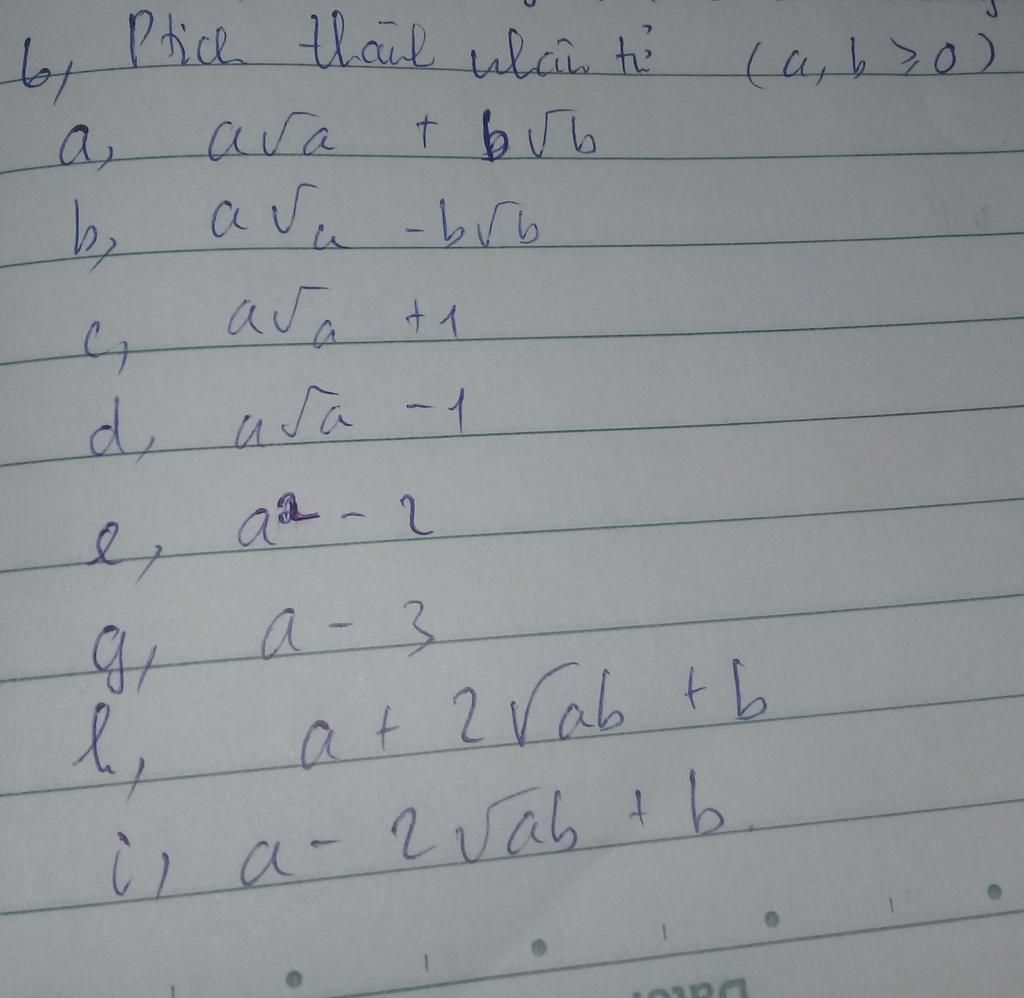 b, Ptích thành nhân tử (a, b ≥ 0)
a, a√a + b√b
b, a√a - b√b
c, a√a + 1
d, a√a - 1
e, a² - 2
g, a - 3
h, a + 2√ab + b
i, a - 2√ab + b